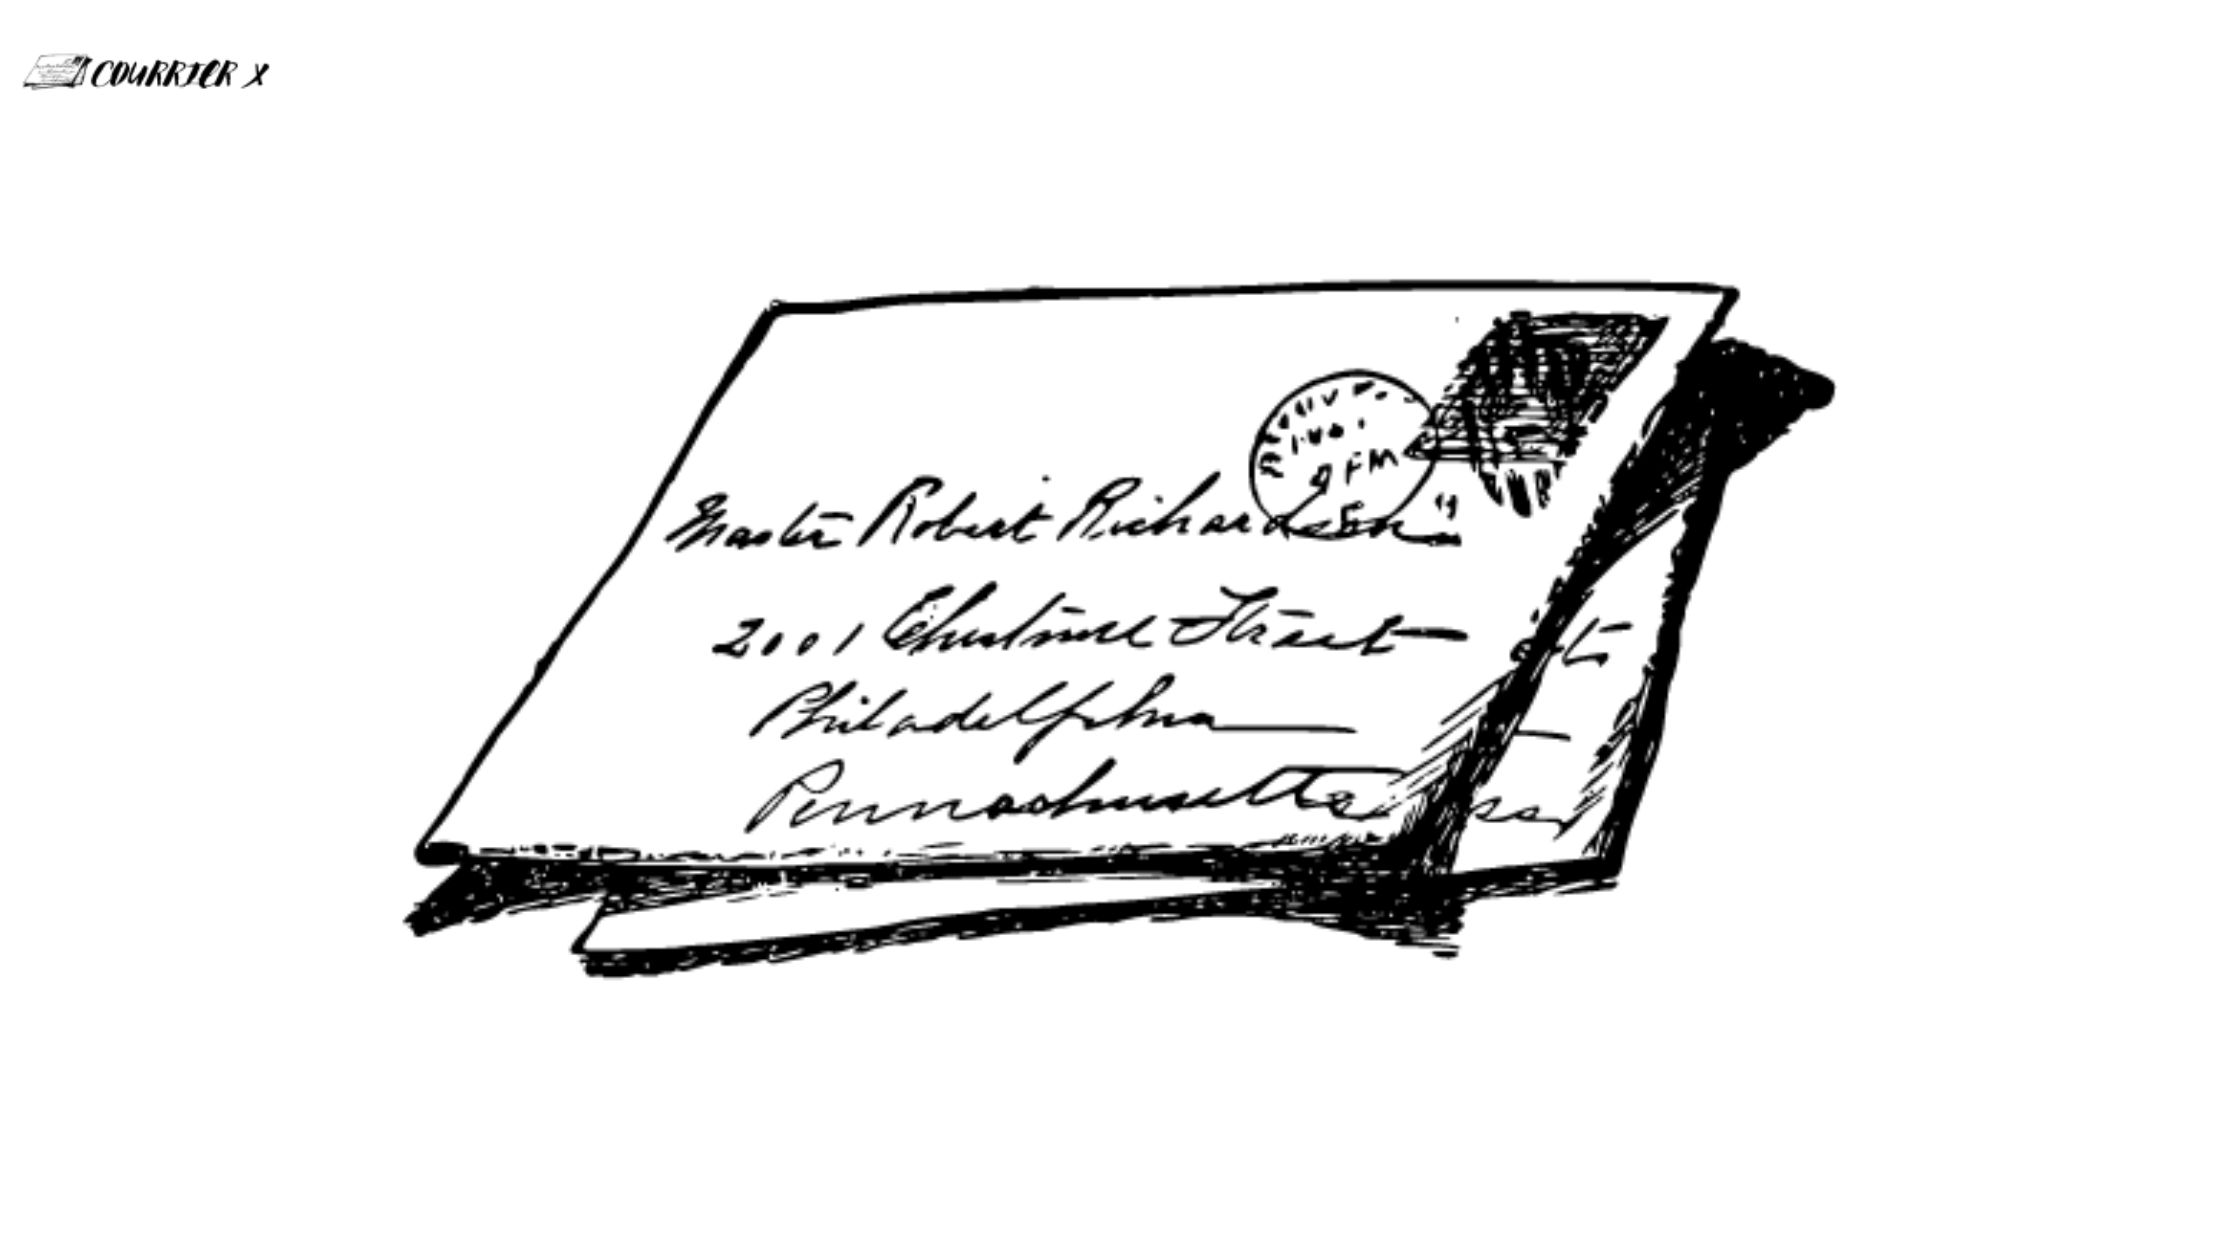 COURRIER X
9 PM
Master Robert Richardson
2001 Chestnut Street
Philadelphia
Pennachusetts